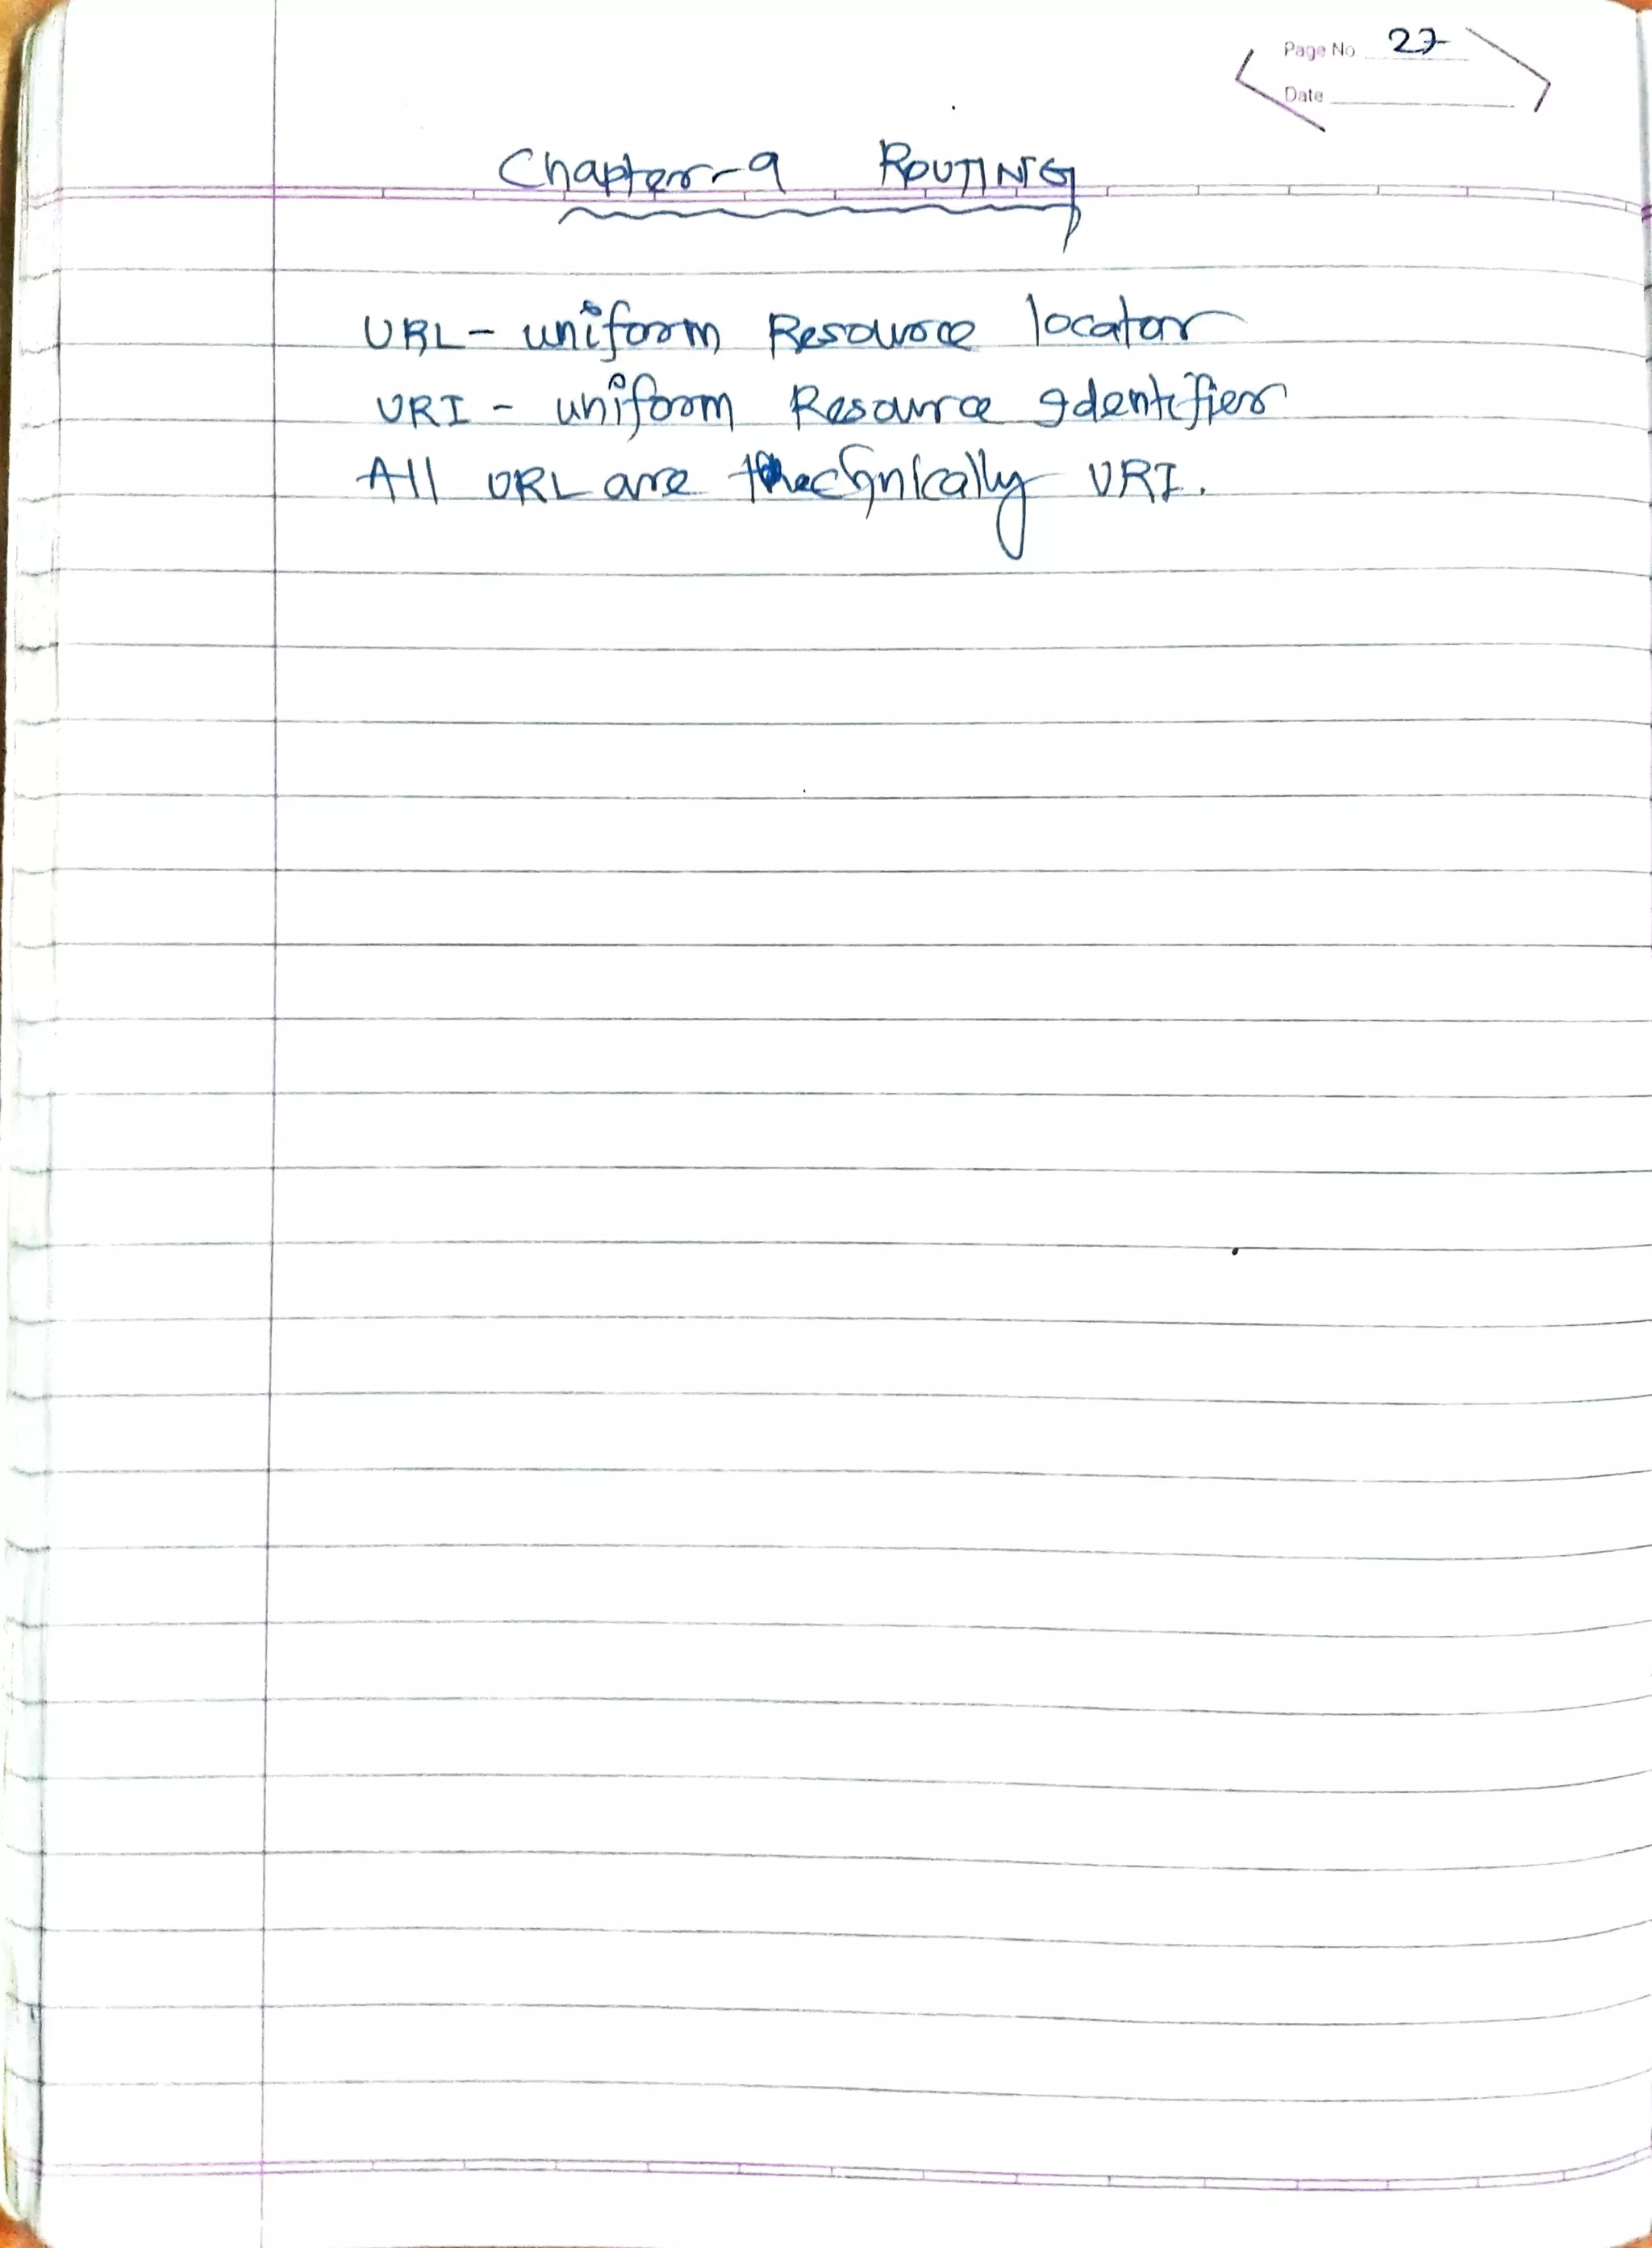 Page No 27
Date
Chapter-9 ROUTING
URL - uniform Resource locator
URI - uniform Resource Identifier
All URL are technically URI.